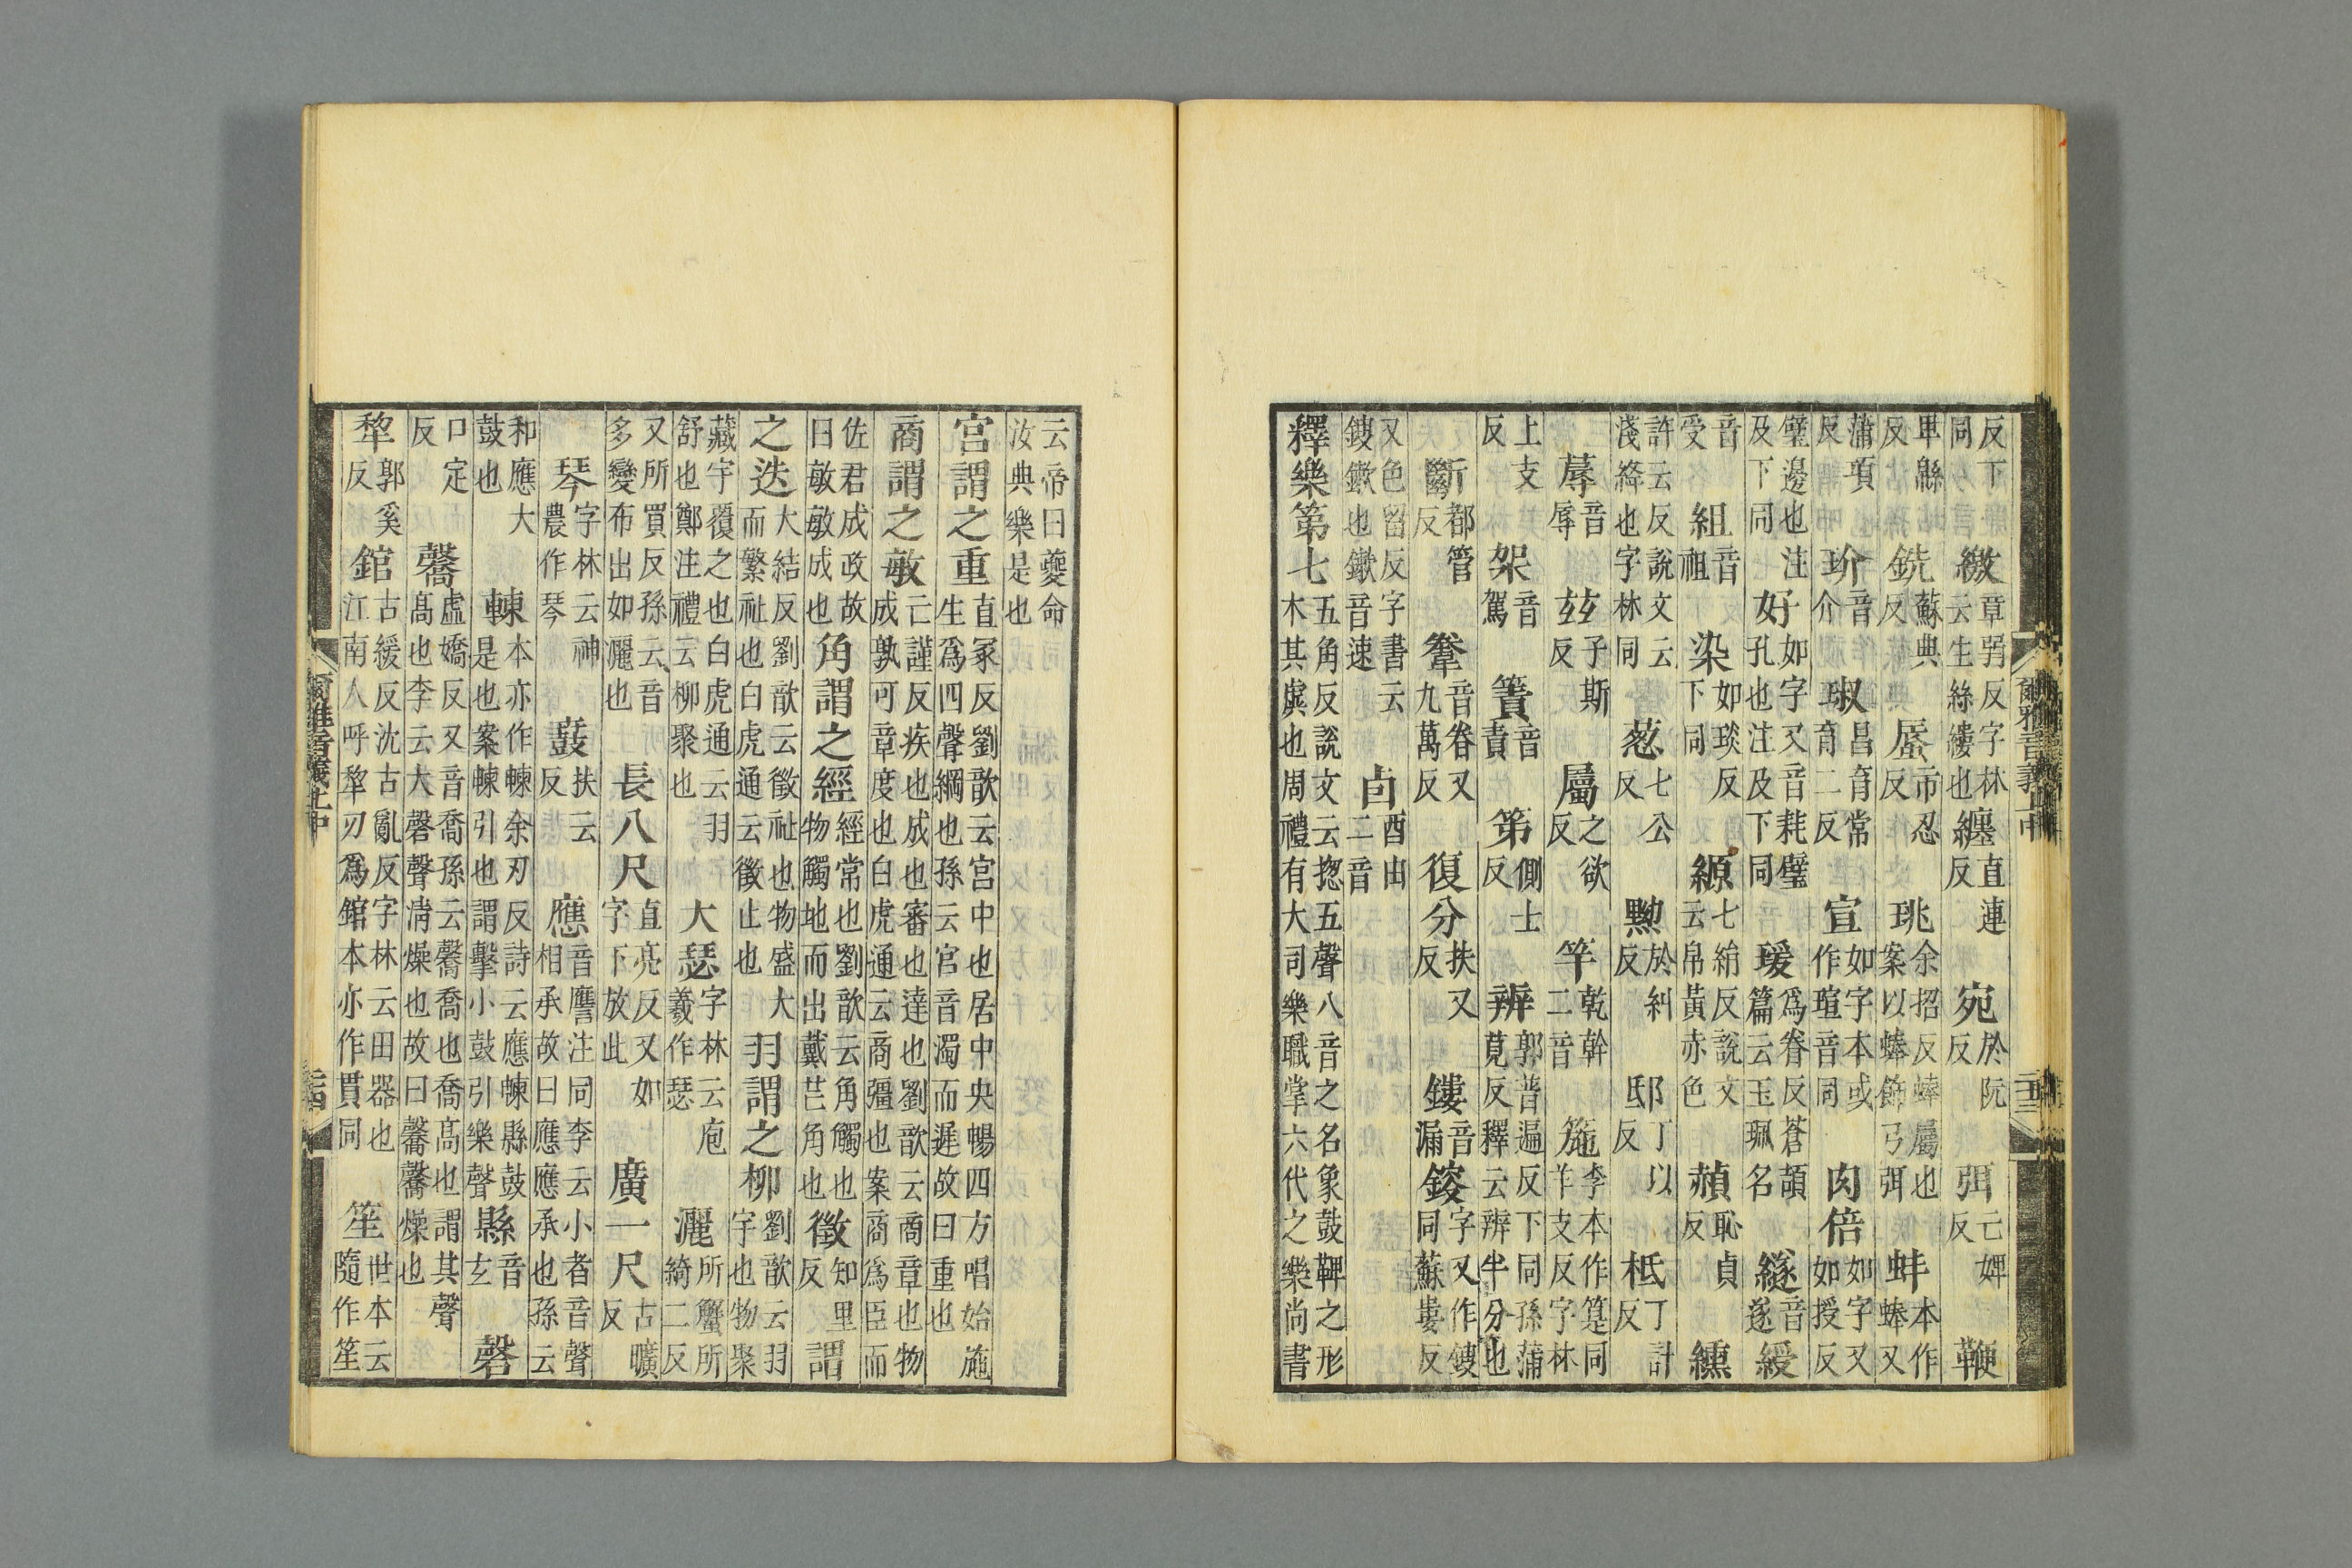 反下同 繳章弱反字林云生絲縷也 纏直連反 宛於阮反 弭亡婢反 鞭
卑緜反 銑蘇典反 蜃市忍反 珧余招反蜯屬也案以蜯飾弓弭 蚌本作蜯又
蒲項反 玠音介 琡昌育常育二反 宣如字本或作瑄音同 肉倍如字又如授反
璧邊也注及下同 好如字又音耗璧孔也注及下同 瑗爲眷反蒼頡篇云玉珮名 繸音遂 綬
音受 組音祖 染如琰反下同 縓七絹反說文云帛黃赤色 赬恥貞反 纁
許云反說文云淺絳也字林同 葱七公反 黝於糾反 邸丁以反 柢丁計反
蓐音辱 茲子斯反 屬之欲反 竿乾幹二音 箷李本作筵同羊支反字林
上支反 架音駕 簀音責 第側士反 辨郭普遍反下同孫蒲莧反釋云辨半分也
斷都管反 韏音眷又九萬反 復分扶又反 鏤音漏 鎪字又作鎪同蘇婁反
又色留反字書云鎪鏉也鏉音速 卣酉由二音
釋樂第七五角反說文云揔五聲八音之名象鼓鞞之形木其虡也周禮有大司樂職掌六代之樂尚書
爾雅音義上中 二十三
云帝曰夔命汝典樂是也
宮謂之重直冢反劉歆云宮中也居中央暢四方唱始施生爲四聲綱也孫云宮音濁而遲故曰重也
商謂之敏亡謹反疾也成也審也達也劉歆云商章也物成孰可章度也白虎通云商彊也案商爲臣而
佐君成政故曰敏敏成也 角謂之經經常也劉歆云角觸也物觸地而出戴芒角也 徵知里反 謂
之迭大結反劉歆云徵祉也物盛大而繁祉也白虎通云徵止也 羽謂之柳劉歆云羽宇也物聚
藏宇覆之也白虎通云羽舒也鄭注禮云柳聚也 大瑟字林云庖羲作瑟 灑所蟹所綺二反
又所買反孫云音多變布出如灑也 長八尺直亮反又如字下放此 廣一尺古曠反
琴字林云神農作琴 鼖扶云反 應音鷹注同李云小者音聲相承故曰應應承也孫云
和應大鼓也 朄本亦作朄余刃反詩云應朄縣鼓是也案朄引也謂擊小鼓引樂聲 縣音玄 磬
口定反 毊虛嬌反又音喬孫云毊喬也喬高也謂其聲高也李云大磬聲清燥也故曰毊毊燥也
犂郭奚反 錧古緩反沈古亂反字林云田器也江南人呼犂刃爲錧本亦作貫同 笙世本云隨作笙
爾雅音義上中 二十四